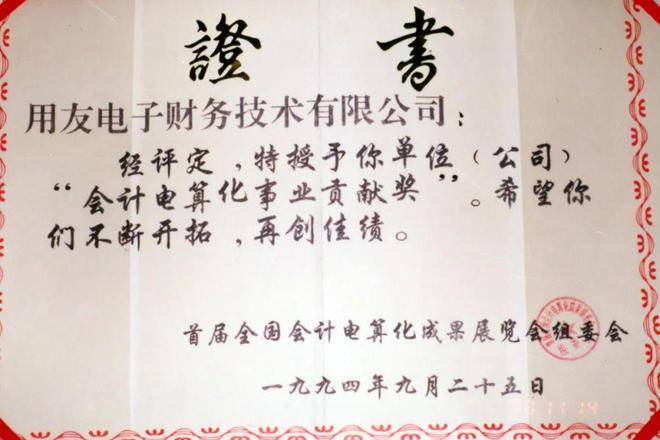 證書
用友电子财务技术有限公司：
经评定，特授予你单位（公司）
“会计电算化事业贡献奖”。希望你
们不断开拓，再创佳绩。
首届全国会计电算化成果展览会组委会
一九九四年九月二十五日